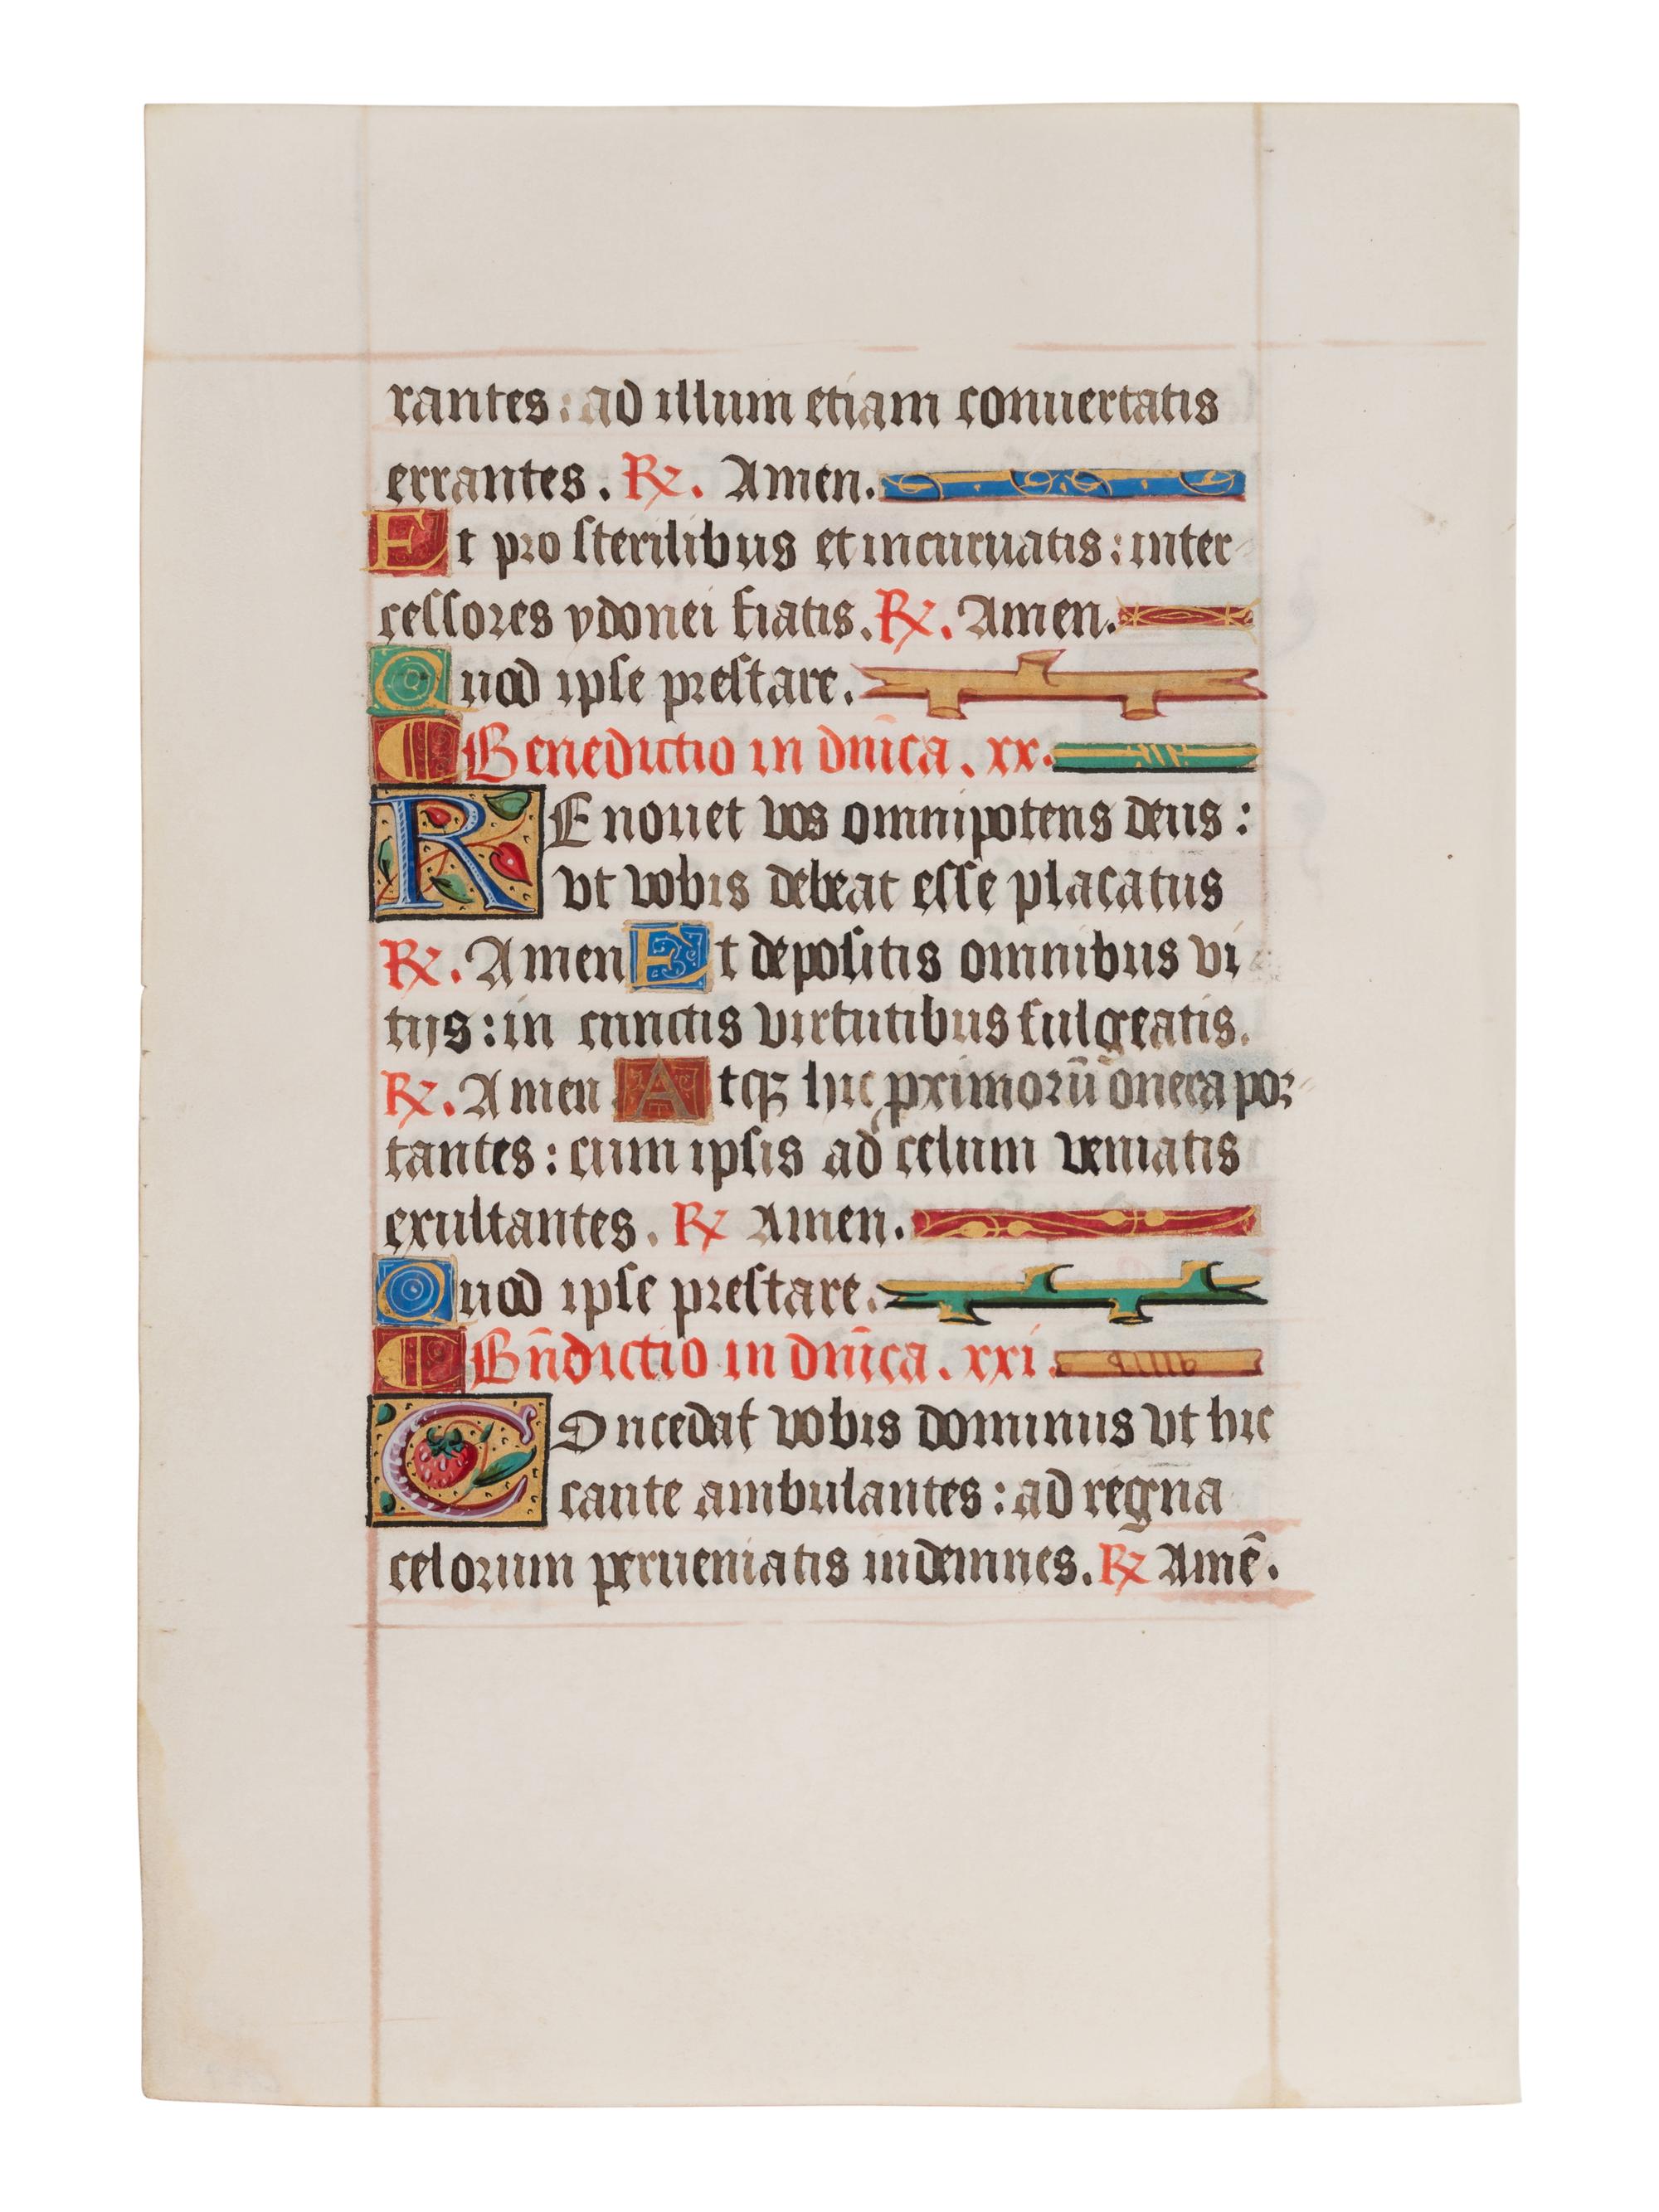 rantes: ad illum etiam conuertatis
errantes. ℟. Amen.
Et pro sterilibus et incuruatis: inter
cessores ydonei fiatis. ℟. Amen.
Quod ipse prestare.
Benedictio in dn̄ica. xx.
REnouet vos omnipotens deus:
vt vobis debeat esse placatus
℟. Amen Et depositis omnibus vi
tijs: in cunctis virtutibus fulgeatis.
℟. Amen Atqꝫ hic ꝓximorū onera por
tantes: cum ipsis ad celum veniatis
exultantes. ℟ Amen.
Quod ipse prestare.
Bn̄dictio in dn̄ica. xxi.
COncedat vobis dominus vt hic
caute ambulantes: ad regna
celorum perueniatis indemnes. ℟ Amē.